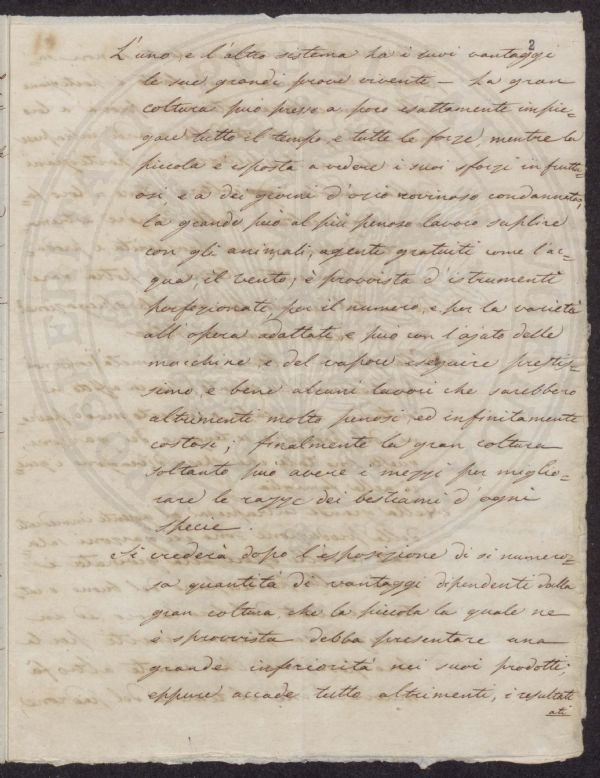 2
L'uno, e l'altro sistema ha i suoi vantaggi
le sue grandi prove viventi — La gran
coltura può presso a poco esattamente impie-
gare tutto il tempo, e tutte le forze, mentre la
piccola è esposta a vedere i suoi sforzi infruttu-
osi, e a dei giorni d'ozio rovinoso condannata;
la grande può al più penoso lavoro suplire
con gli animali, agenti gratuiti come l'ac-
qua, il vento; è provvista d'istrumenti
perfezionati, per il numero, e per la varietà
all'opera adattati, e può con l'ajuto delle
macchine, e del vapore eseguire prestis-
simo, e bene alcuni lavori che sarebbero
altrimenti molto penosi, ed infinitamente
costosi; finalmente la gran coltura
soltanto può avere i mezzi per miglio-
rare le razze dei bestiami d'ogni
specie.
Si crederà dopo l'esposizione di si numero-
sa quantità di vantaggi dipendenti dalla
gran coltura, che la piccola la quale ne
è sprovvista debba presentare una
grande inferiorità nei suoi prodotti;
eppure accade tutto altrimenti, i resultati
ati